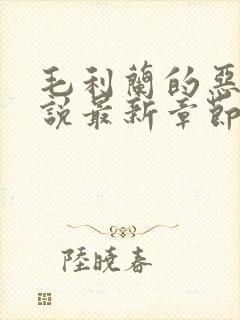 毛利蘭的惡
說最新章節
陸曉春